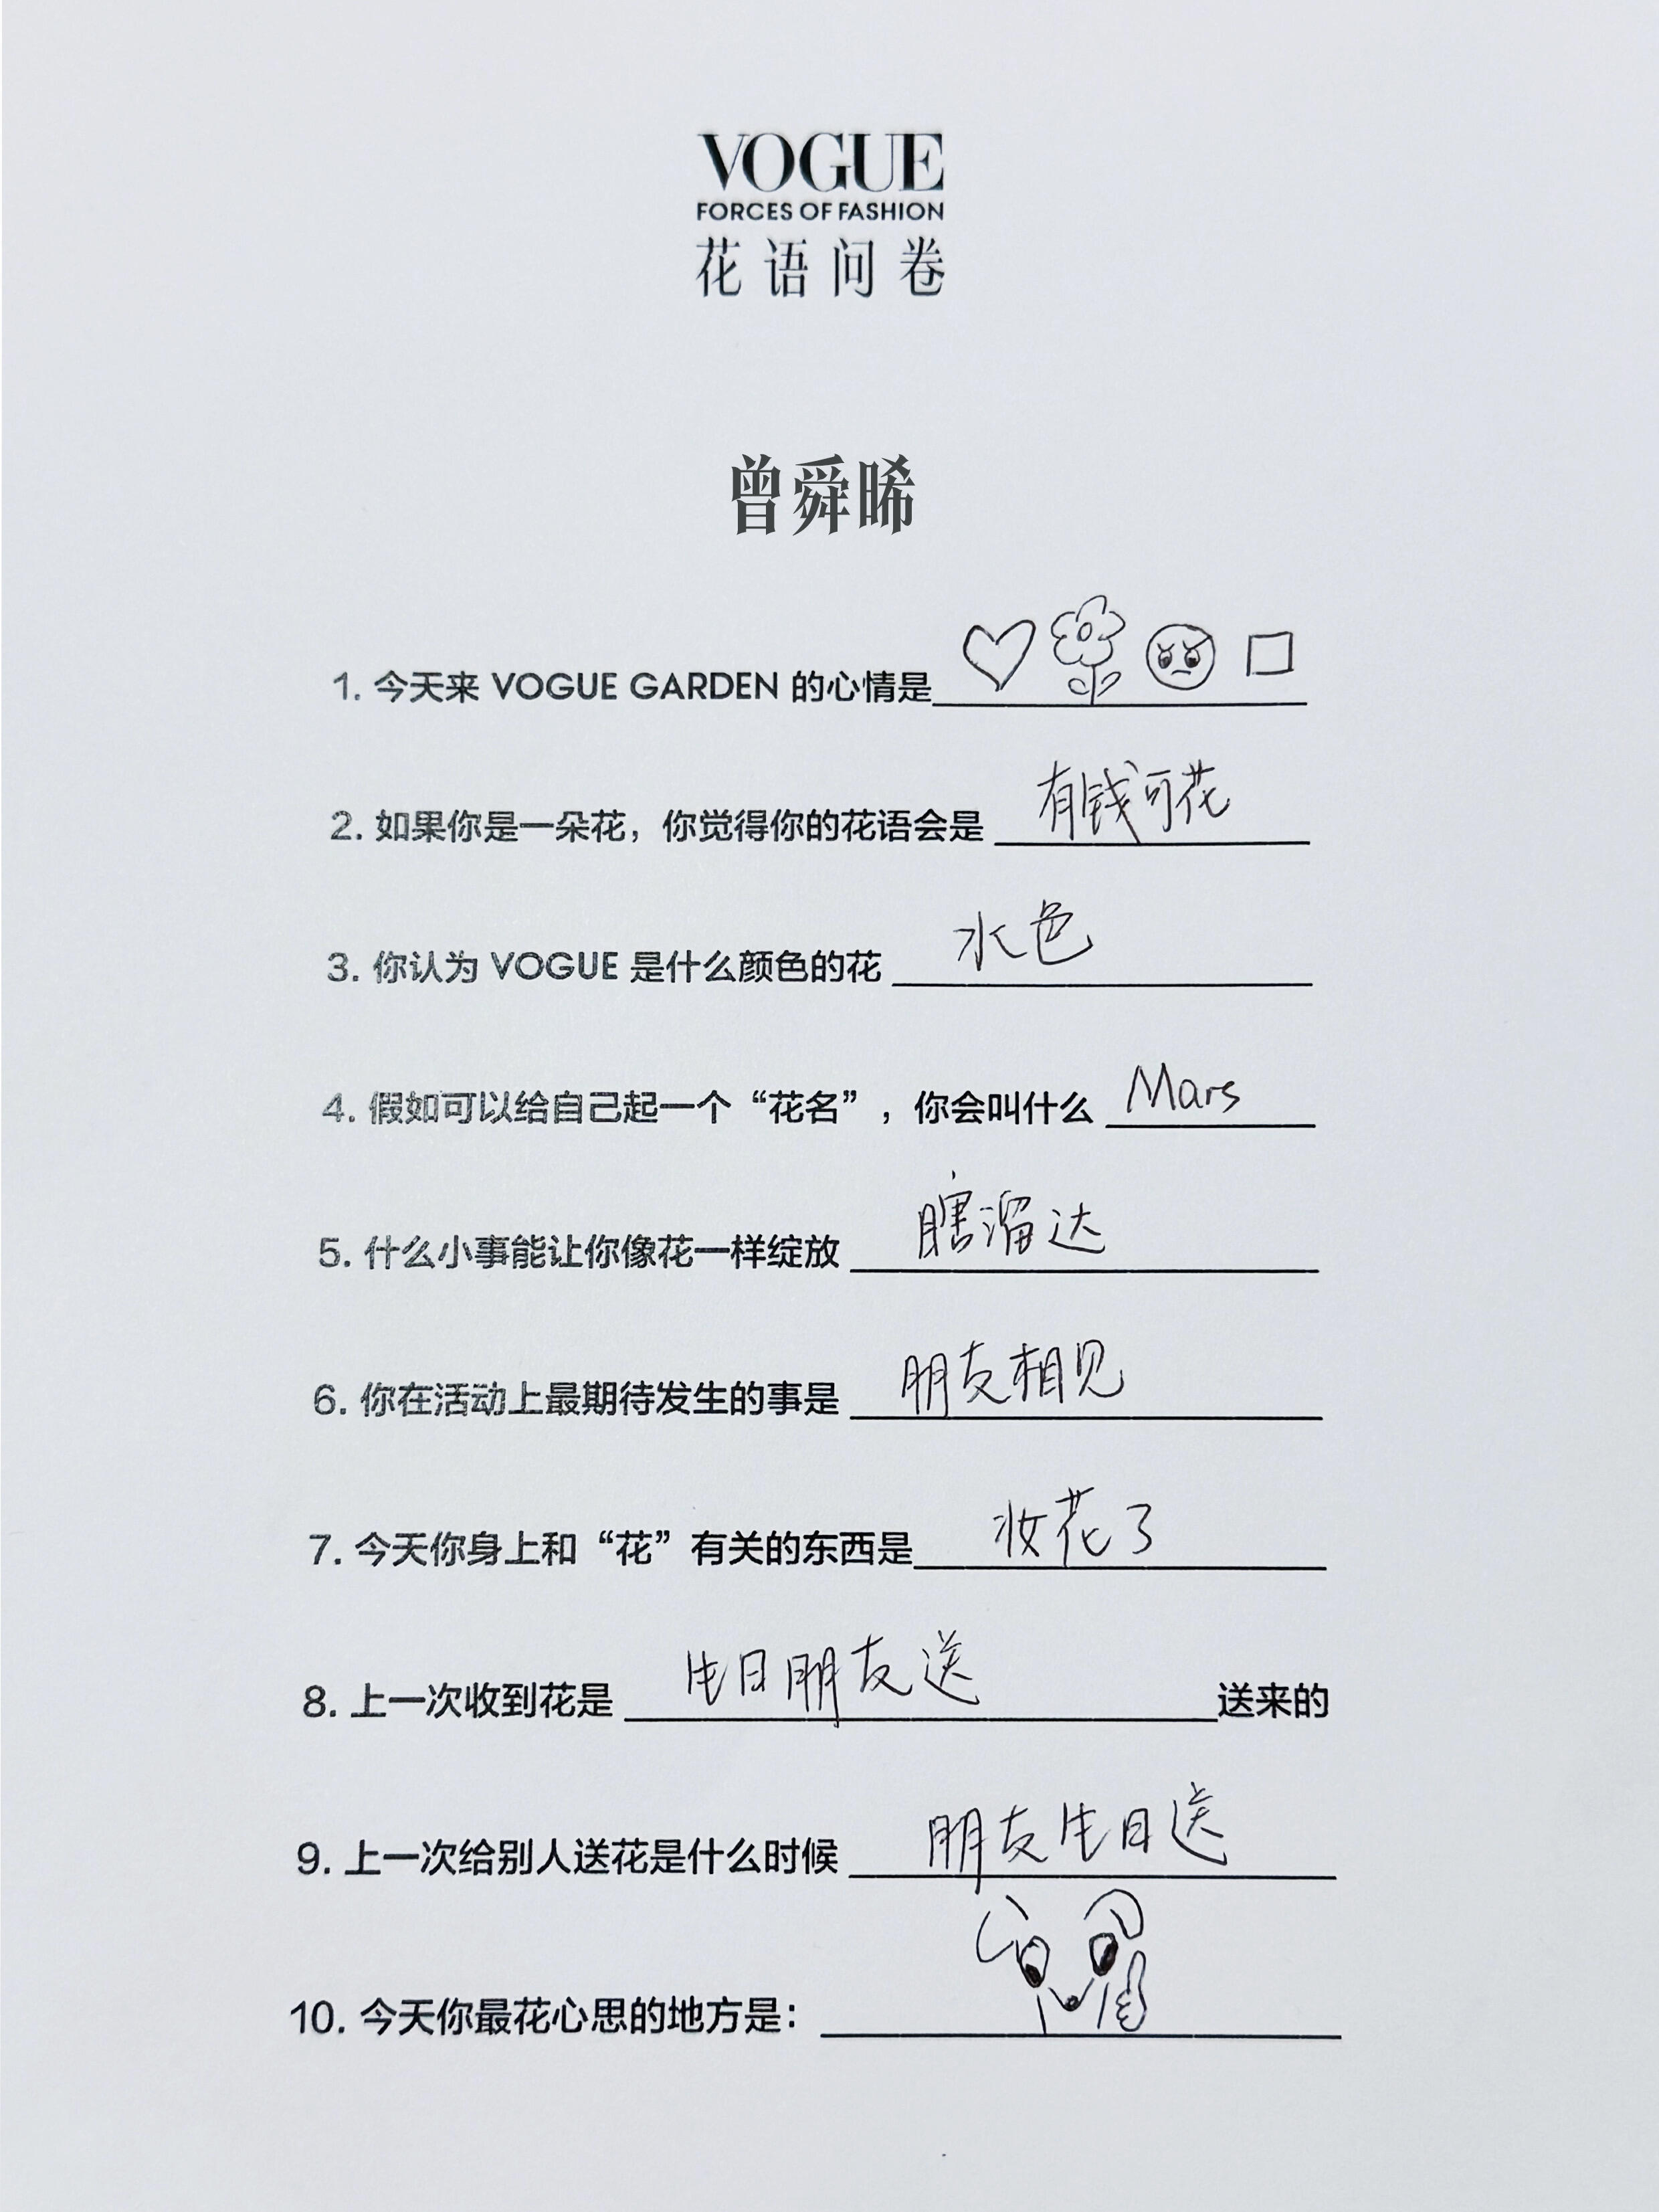 VOGUE
FORCES OF FASHION
花语问卷
曾舜晞
1. 今天来 VOGUE GARDEN 的心情是
2. 如果你是一朵花，你觉得你的花语会是 有钱可花
3. 你认为 VOGUE 是什么颜色的花 水色
4. 假如可以给自己起一个“花名”，你会叫什么 Mars
5. 什么小事能让你像花一样绽放 瞎溜达
6. 你在活动上最期待发生的事是 朋友相见
7. 今天你身上和“花”有关的东西是 妆花了
8. 上一次收到花是 生日朋友送 送来的
9. 上一次给别人送花是什么时候 朋友生日送
10. 今天你最花心思的地方是：